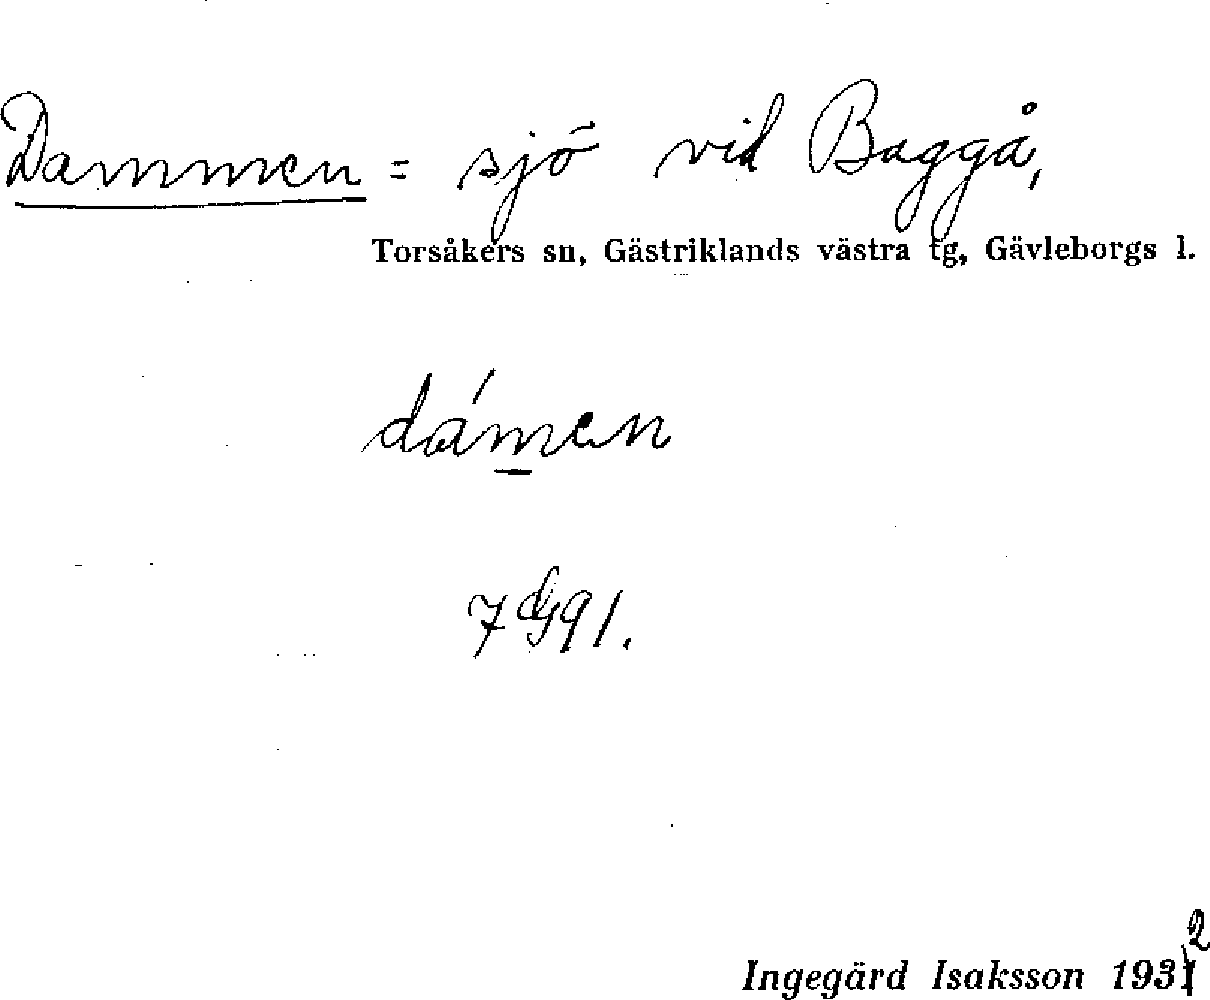 Dammen = sjö vid Baggå,
Torsåkers sn, Gästriklands västra tg, Gävleborgs l.
dámen
Ingegärd Isaksson 1932